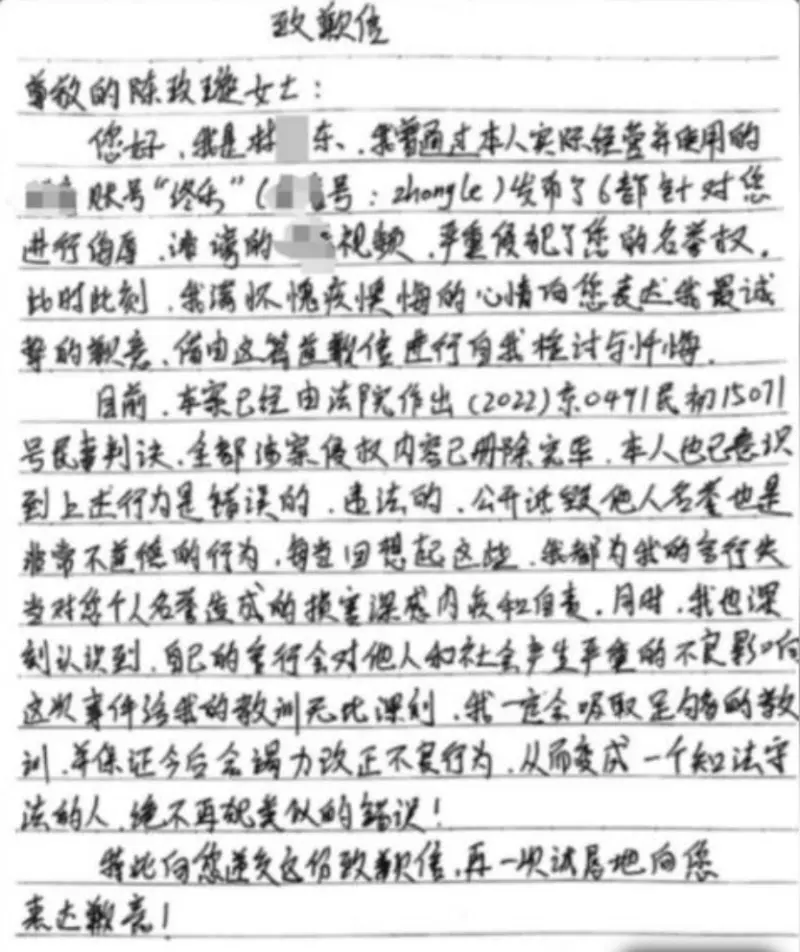 致歉信
尊敬的陈玫璇女士:
您好,我是林 东、我曾通过本人实际经营并使用的
账号“终乐”( 号:zhongle)发布了6部针对您
进行侮辱、诽谤的 视频,严重侵犯了您的名誉权。
此时此刻,我满怀愧疚懊悔的心情向您表达我最诚
挚的歉意、借由这篇道歉信进行自我检讨与忏悔.
目前,本案已经由法院作出(2022)京0491民初15071
号民事判决、全部涉案侵权内容已删除完毕,本人也已意识
到上述行为是错误的、违法的、公开诋毁他人名誉也是
非常不道德的行为,每当回想起这些,我都为我的言行失
当对您个人名誉造成的损害深感内疚和自责,同时,我也深
刻认识到,自己的言行会对他人和社会产生严重的不良影响
这次事件给我的教训无比深刻,我一定会吸取足够的教
训,并保证今后会竭力改正不良行为,从而变成一个知法守
法的人,绝不再犯类似的错误!
特此向您递交这份致歉信,再一次诚恳地向您
表达歉意!